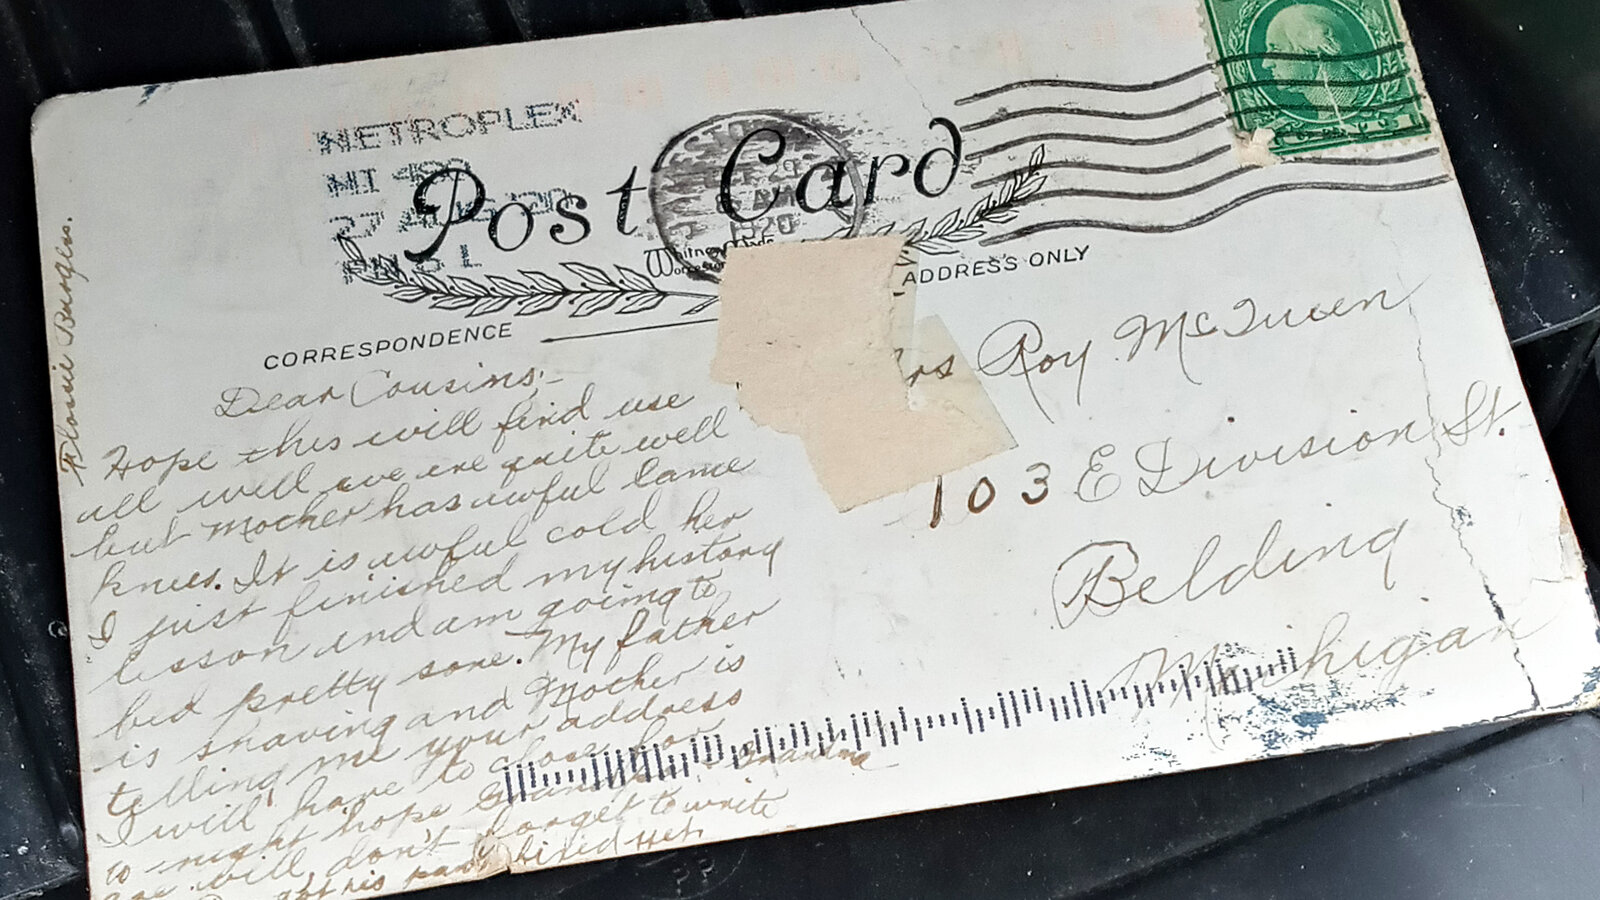 METROPLEX
MI 480
27 AUG 20
PM 6 L
JAMESTOWN
1920
Post Card
Whitney Made
Worcester
CORRESPONDENCE
ADDRESS ONLY
Flossie Burgess.
Dear Cousins:-
Hope this will find use
all well we are quite well
but Mother has awful lame
knees. It is awful cold her
I just finished my history
lesson and am going to
bed pretty sone. My father
is shaving and Mother is
telling me your address
I will have to close for
to night hope Grandpa & Grandma
are will don't forget to write
got his pants fixed yet
Mrs Roy McQueen
103 E Division St.
Belding
Michigan